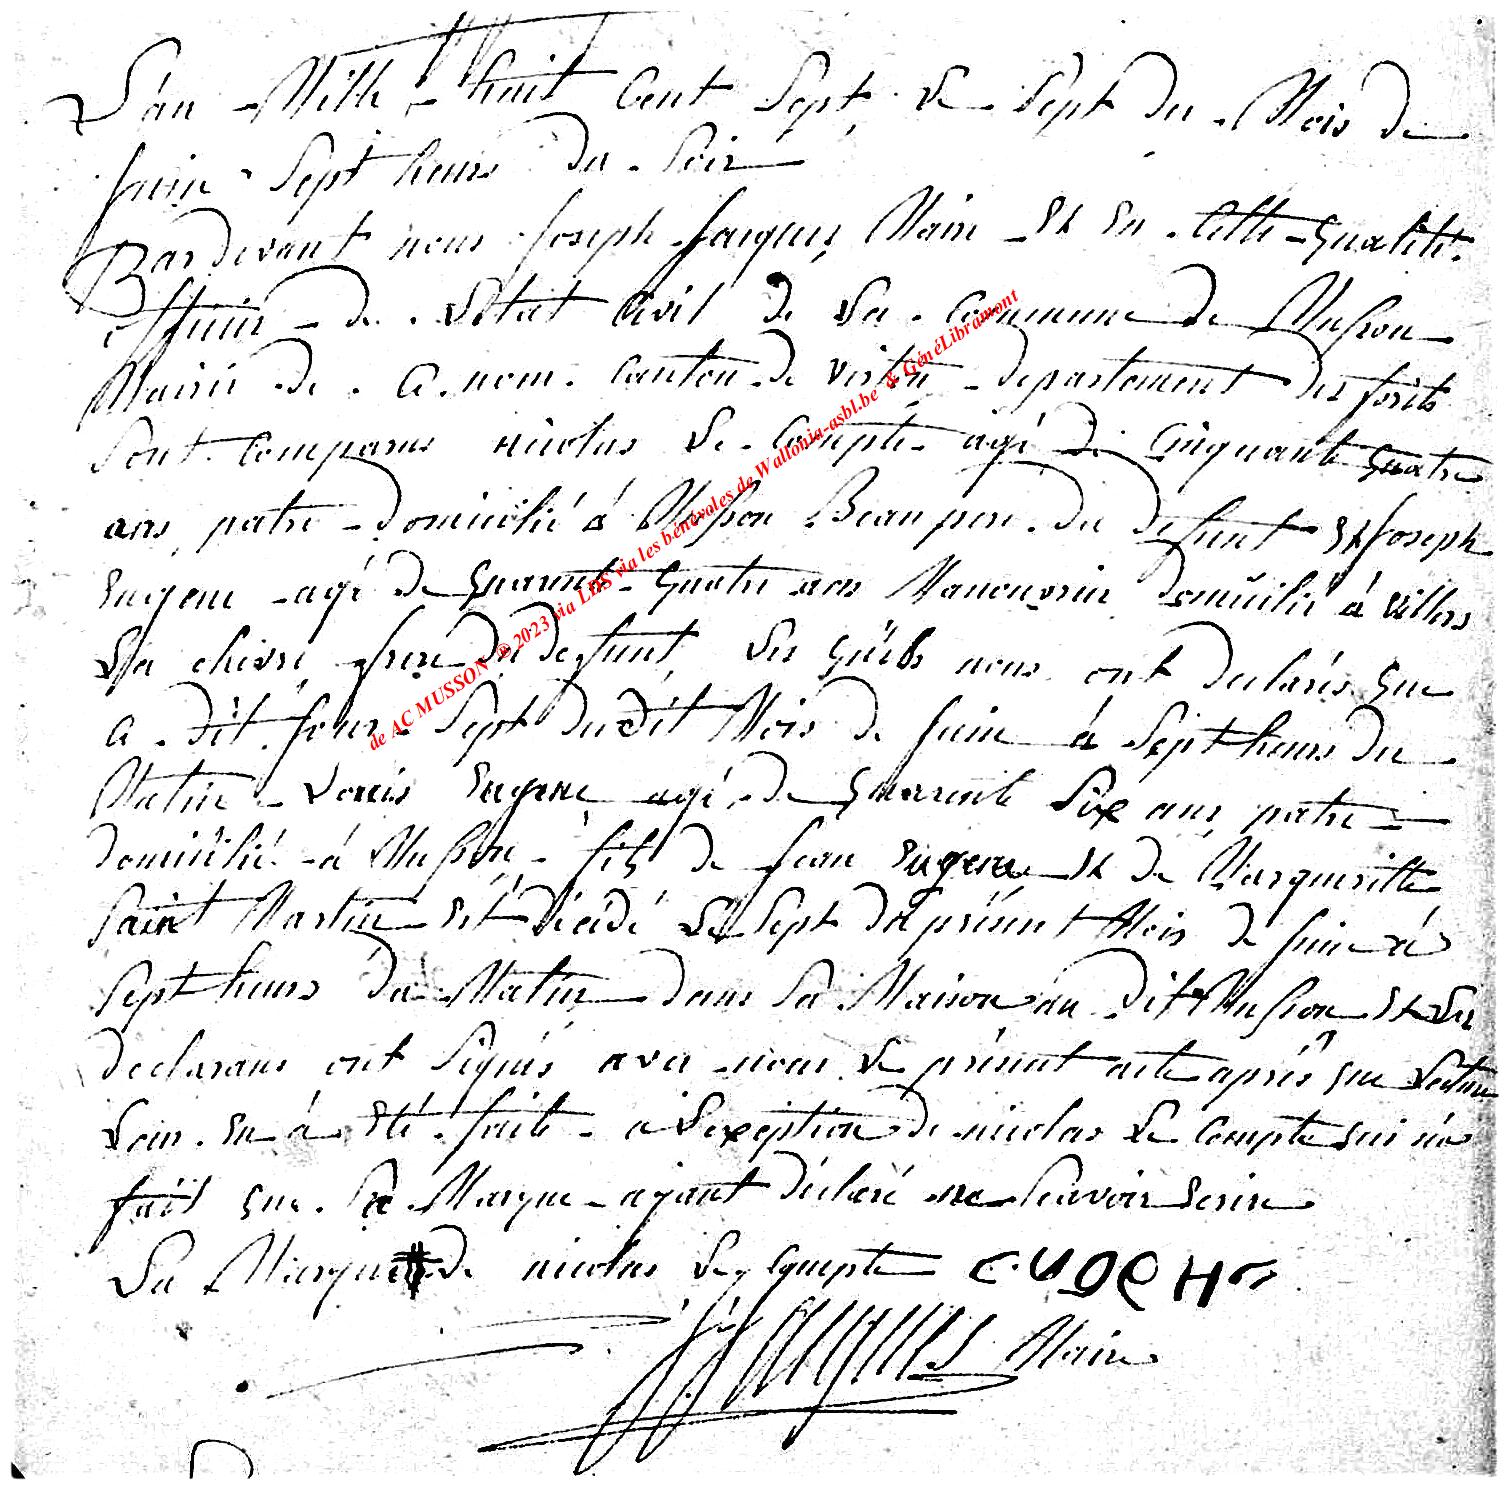 L'an Mille huit Cent Sept, Le Sept du Mois de
Juin Sept heurs du Soir
Pardevant nous Joseph Jacques, Maire Et En Cette Qualité
officier de L'Etat Civil de La Commune de Musson
Mairie de Ce nom Canton de virton departement des forêts
Sont Comparus nicolas Le Compte agé de Cinquante Quatre
ans, patre domicilié à Musson Beau pere du defunt Et Joseph
Eugene agé de Quarente Quatre ans Manouvrier domicilié à villers
La chevre, frere du defunt, Les Quels nous ont declarés que
Ce dit Jour Sept du dit Mois de Juin à Sept heurs du
Matin Louis Eugene agé de Quarente Six ans, patre
domicilié à Musson, fils de Jean Eugene Et de Margueritte
Saint Martin Est Décédé Le Sept du présent Mois de Juin à
Sept heurs du Matin dans Sa Maison au dit Musson Et Les
declarans ont Signés avec nous Le présent acte après que Lecture
Leur En à Eté faite a L'exeption de nicolas Le Compte qui n'a
fait que Sa Marque ayant déclaré ne Scavoir Ecrire
La Marque de nicolas Le Compte
JJacques Maire
de AC MUSSON © 2023 via LDS via les bénévoles de Wallonia-asbl.be & GénéLibramont